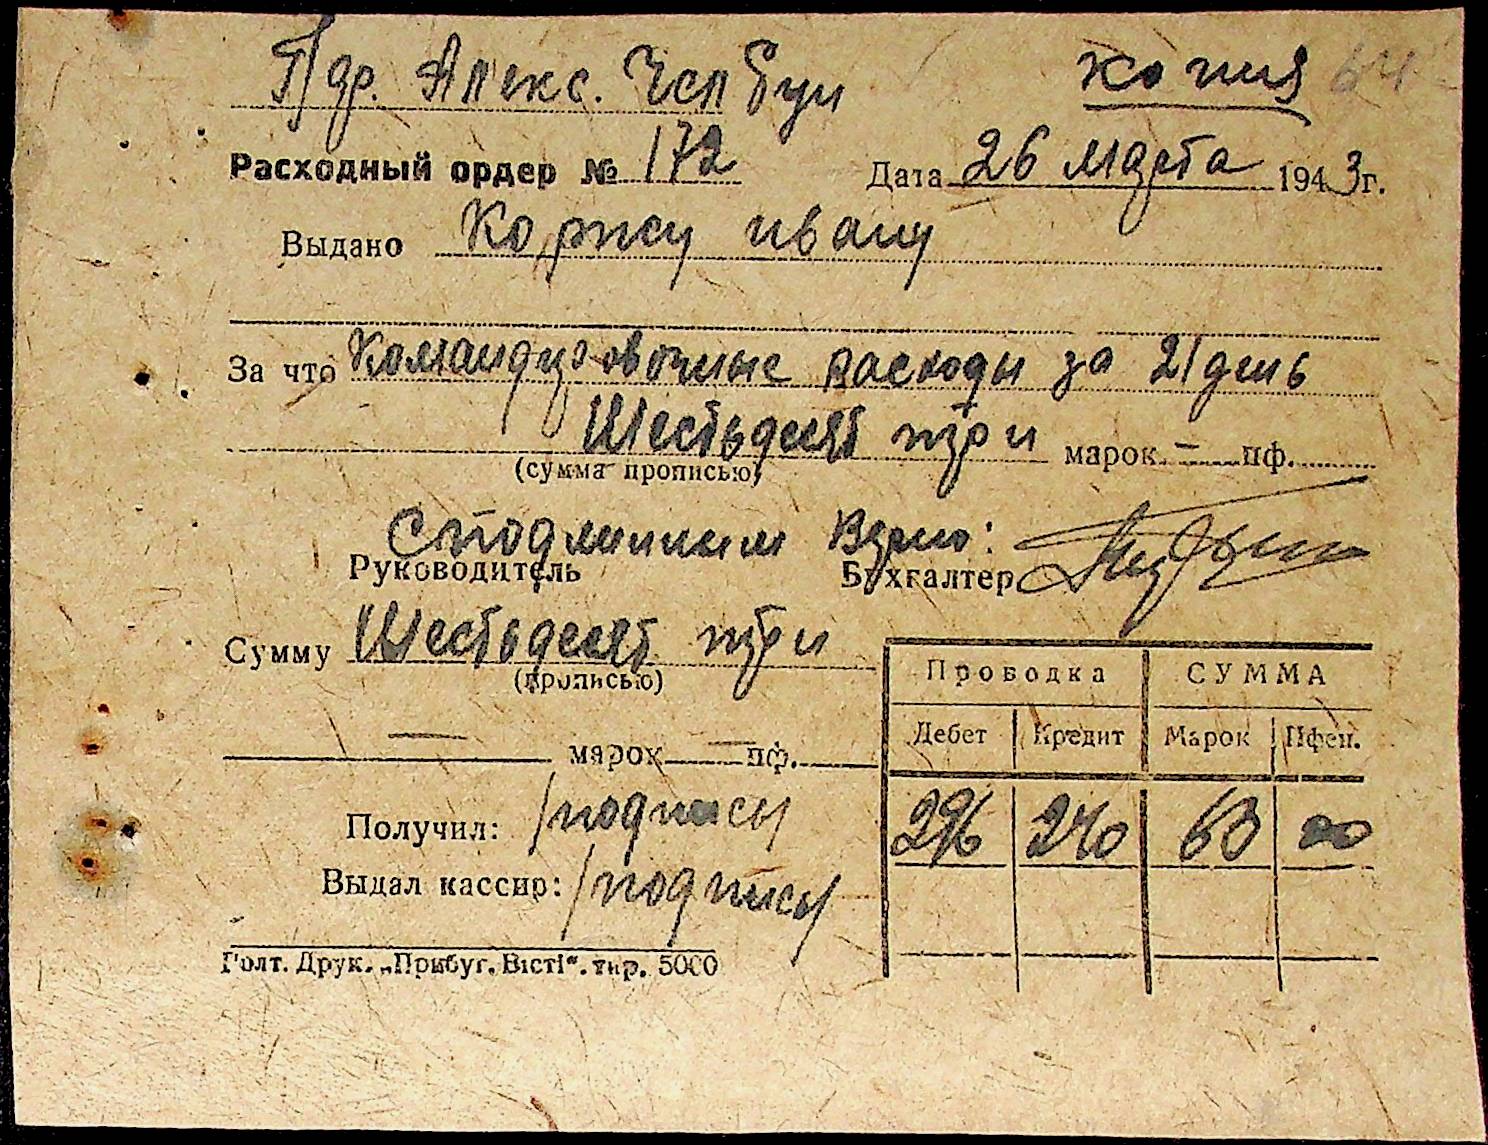 Пдр. Алекс. копия 64
Расходный ордер № 172 Дата 26 марта 1943 г.
Выдано Коржу ивану
За что Командировочные расходы за 21 день
Шестьдесят три марок. — пф.
(сумма прописью)
С подлинным верно:
Руководитель Бухгалтер
Сумму Шестьдесят три
(прописью)
— марок — пф.
Проводка СУММА
Дебет Кредит Марок Пфен.
296 240 63 00
Получил: /подпись/
Выдал кассир: /подпись/
Голт. Друк. „Прибуг. Вісті“. тир. 5000